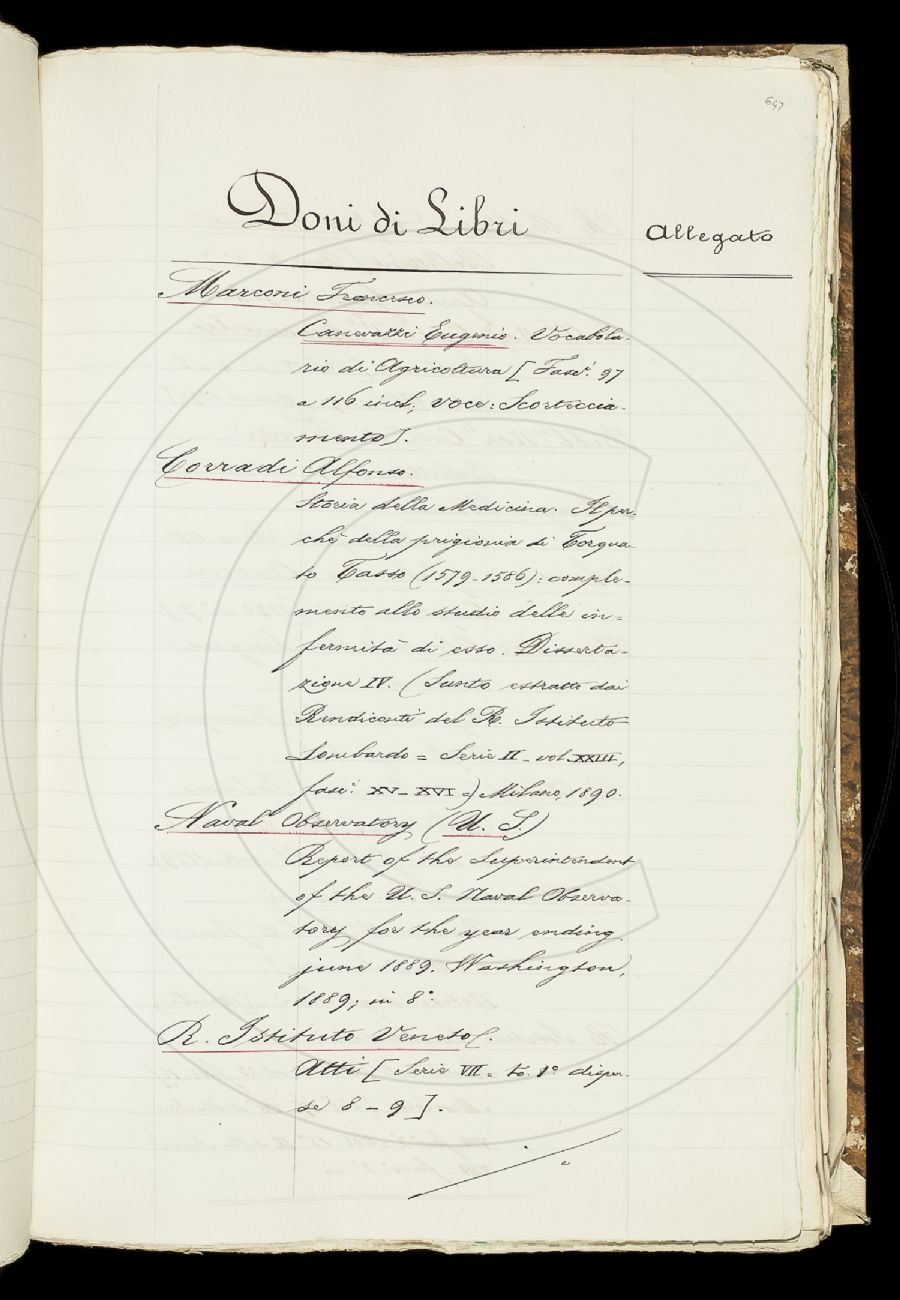 647
Doni di Libri
Allegato
Marconi Francesco.
Canevazzi Eugenio. Vocabola-
rio di Agricoltura [Fasc.i 97
a 116 incl; voce: Scorteccia-
mento].
Corradi Alfonso.
Storia della Medicina. Il per-
chè della prigionia di Torqua-
to Tasso (1579-1586): comple-
mento allo studio delle in-
fermità di esso. Disserta-
zione IV. (Sunto estratto dai
Rendiconti del R. Istituto
Lombardo = Serie II - vol. XXIII,
fasc.i XV - XVI =) Milano, 1890.
Naval Observatory (U. S.)
Report of the Superintendent
of the U. S. Naval Observa-
tory for the year ending
june 1889. Washington,
1889; in 8.°
R. Istituto Veneto.
Atti [Serie VII = to. 1° dispen-
se 8 - 9].